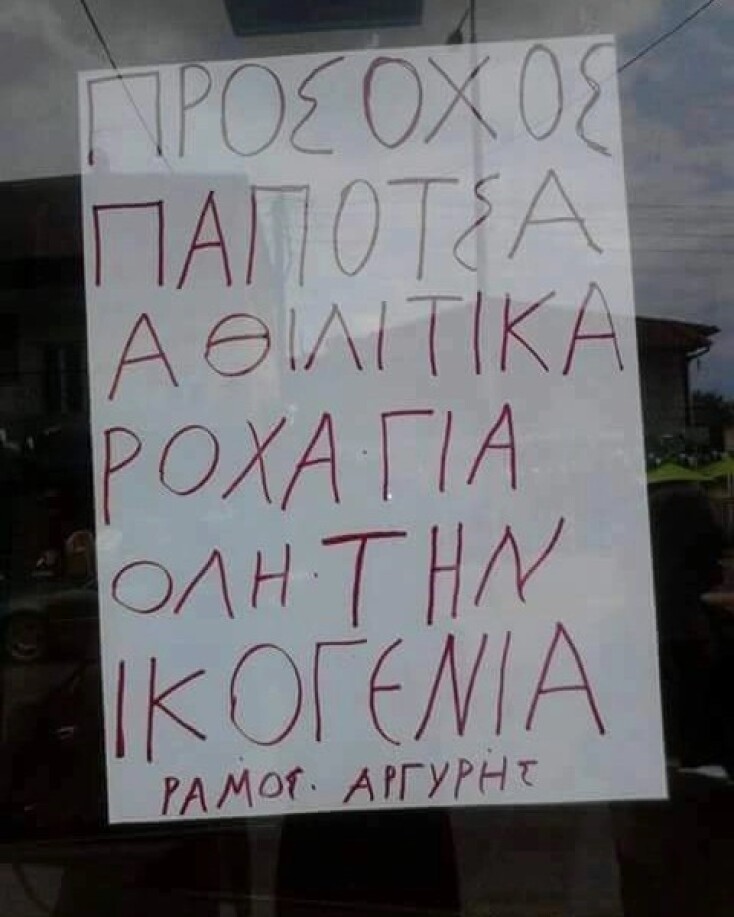 ΠΡΟΣΟΧΟΣ
ΠΑΠΟΤΣΑ
ΑΘΙΛΙΤΙΚΑ
ΡΟΧΑ·ΓΙΑ
ΟΛΗ·ΤΗΝ
ΙΚΟΓΕΝΙΑ
ΡΑΜΟΣ. ΑΡΓΥΡΗΣ